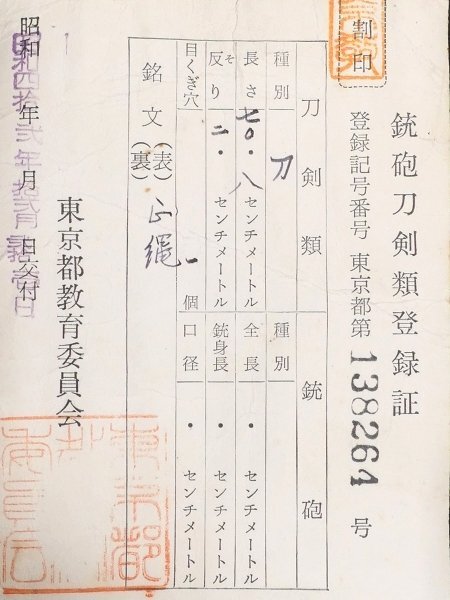 銃砲刀剣類登録証
割印
登録記号番号 東京都第 138264 号
刀剣類
銃砲
種別
刀
種別
長さ
七〇・八 センチメートル
全長
・ センチメートル
反り
そ
二・ センチメートル
銃身長
・ センチメートル
目くぎ穴
一 個
口径
・ センチメートル
銘文
(表)
正繩
(裏)
昭和 年 月 日交付
東京都教育委員会